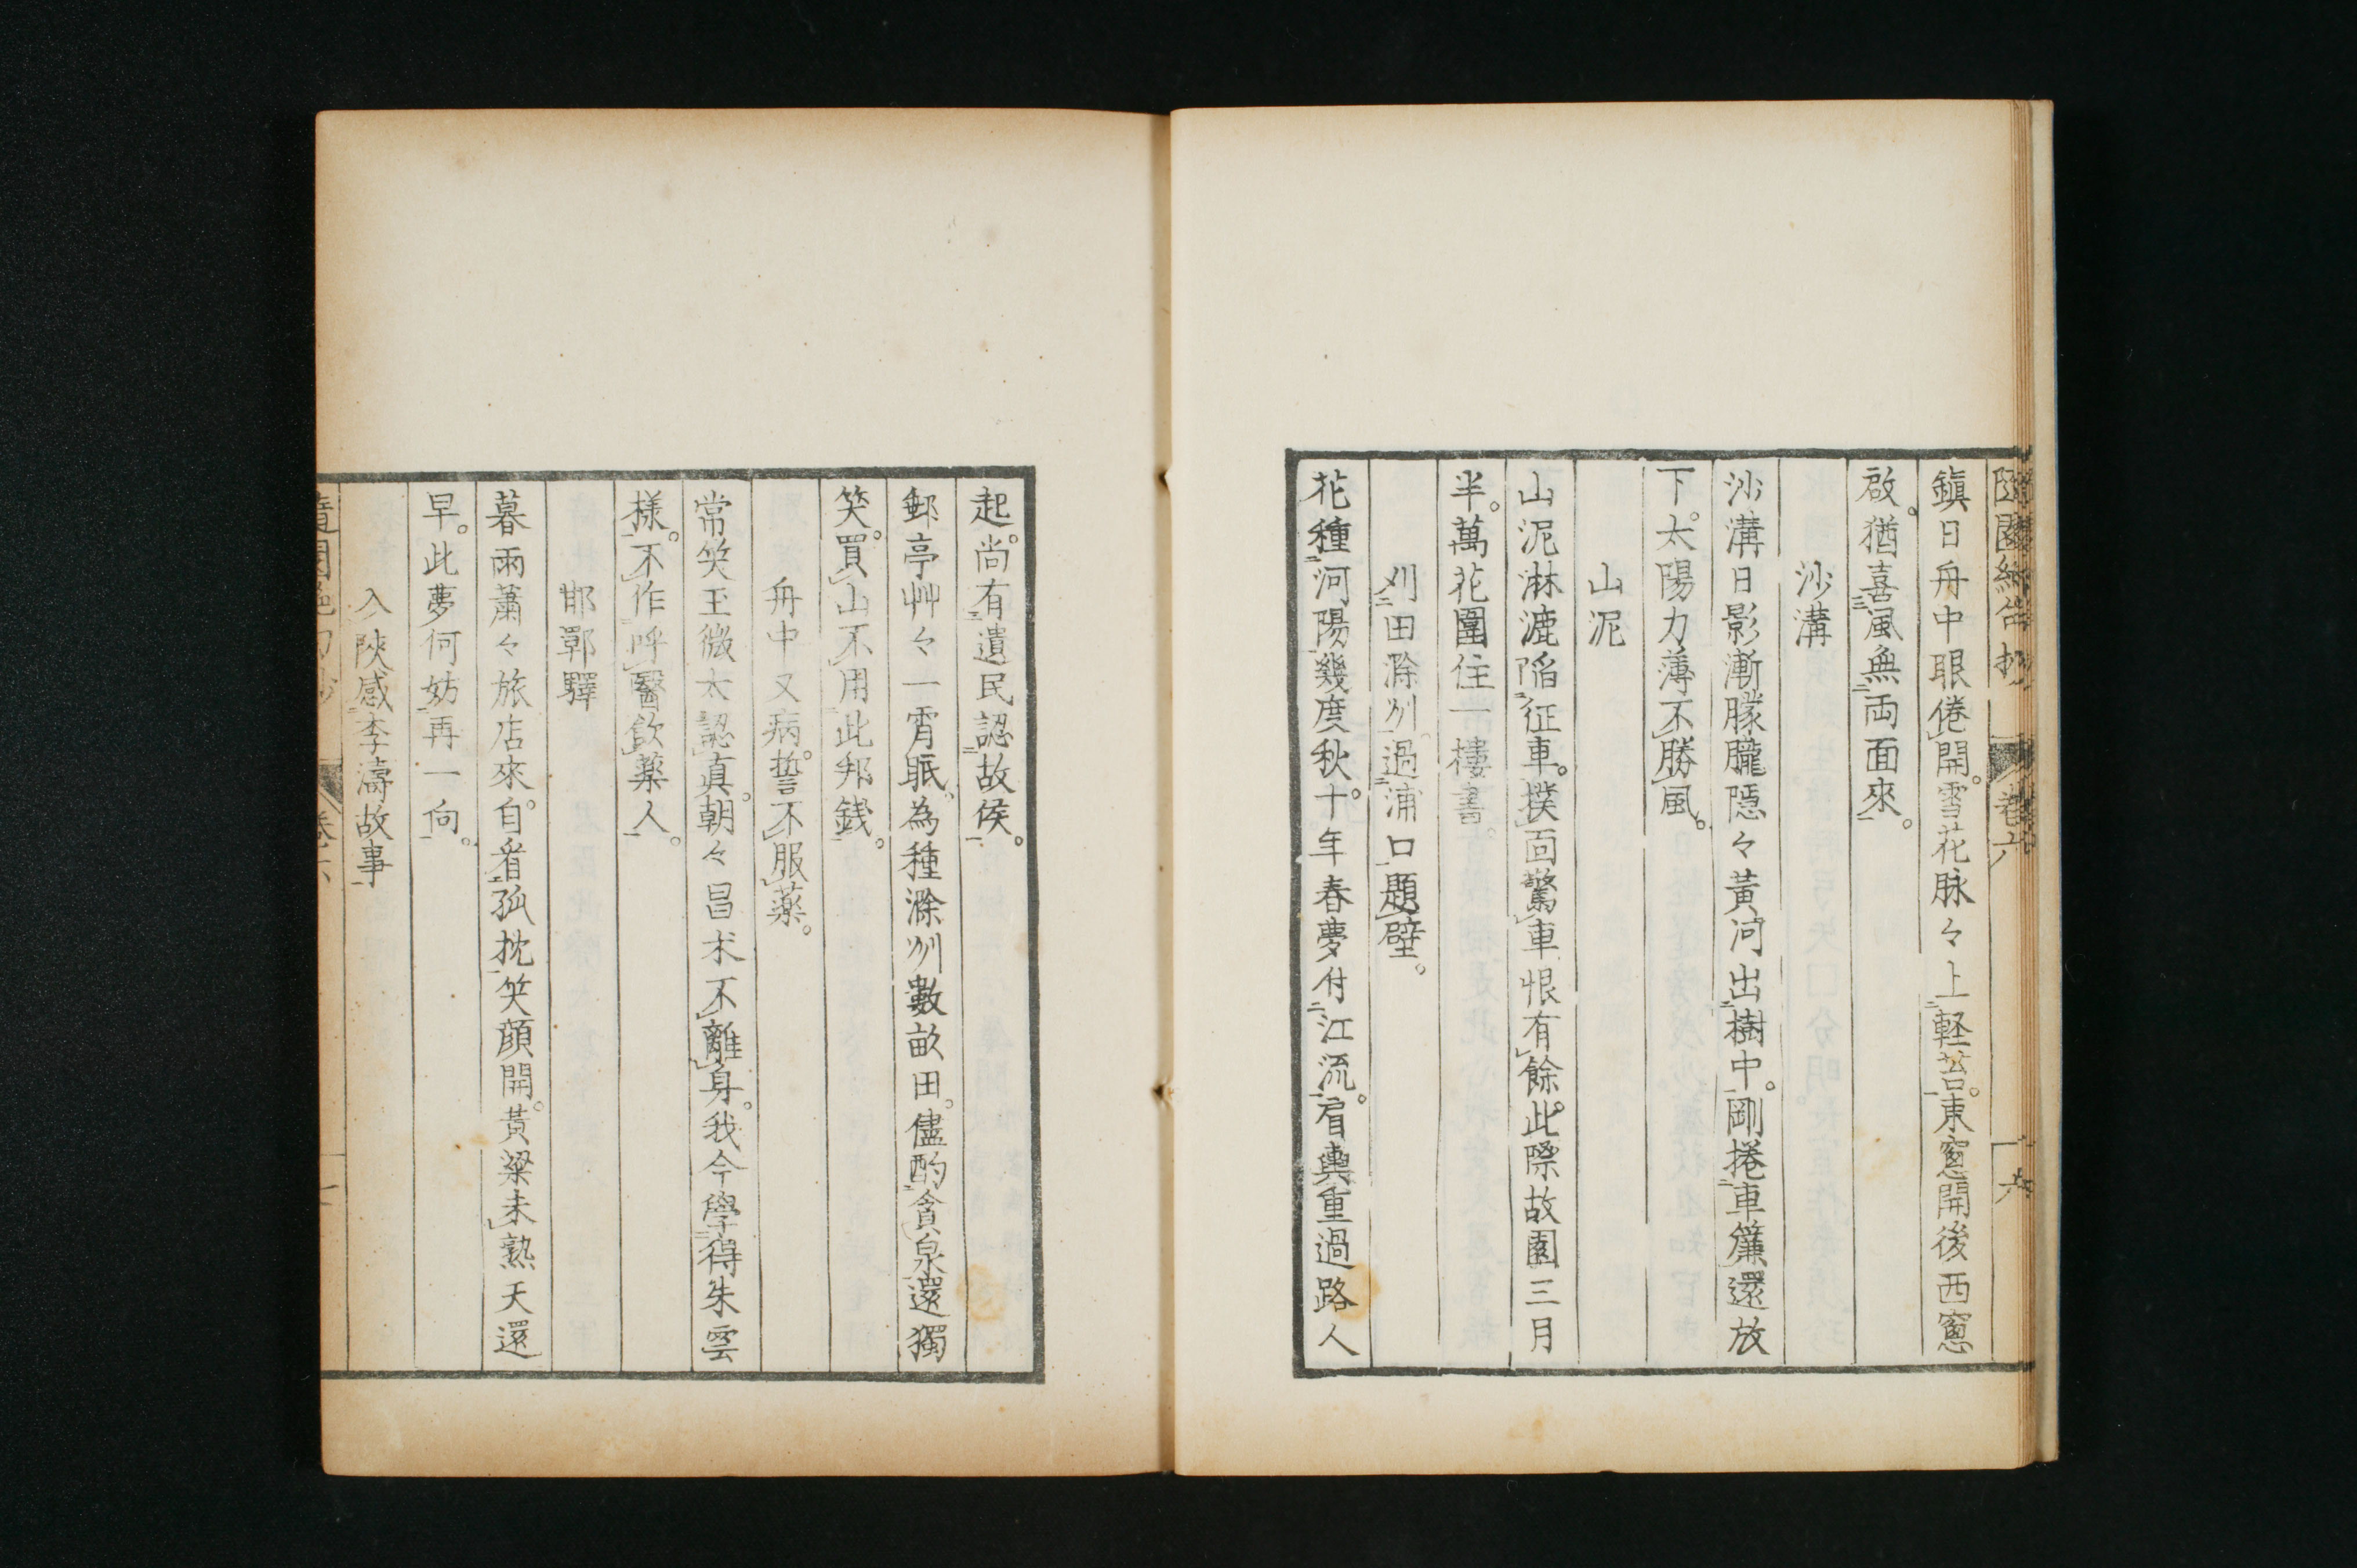 隨園絶句抄 卷六 一 六
鎮日舟中眼倦開。雪花脉々上輕苔。東窻開後西窻
啟。猶喜風無両面來。
沙溝
沙溝日影漸朦朧隠々黄河出樹中。剛捲車簾還放
下。太陽力薄不勝風。
山泥
山泥淋漉陷征車。撲面驚車恨有餘。此際故園三月
半。萬花圍住一樓書。
刈田滁州過浦口題壁。
花種河陽幾度秋。十年春夢付江流。肩輿重過路人
起。尚有遺民認故侯。
郵亭艸々一宵眠。為種滁州數畝田。儘酌貪泉還獨
笑。買山不用此邦銭。
舟中又病。誓不服薬。
常笑王微太認真。朝々昌朮不離身。我今學得朱雲
様。不作呼醫飲薬人。
邯鄲驛
暮雨蕭々旅店來。自看孤枕笑顔開。黄粱未熟天還
早。此夢何妨再一向。
入陝感李濤故事
隨園絶句抄 卷六